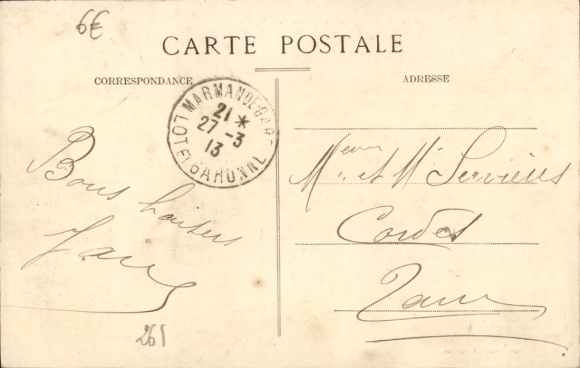 6€
CARTE POSTALE
CORRESPONDANCE
ADRESSE
MARMANDE GARE
21 *
27 - 3
13
LOT ET GARONNE
Bons baisers
M et M Servières
Cordes
Tarn
261